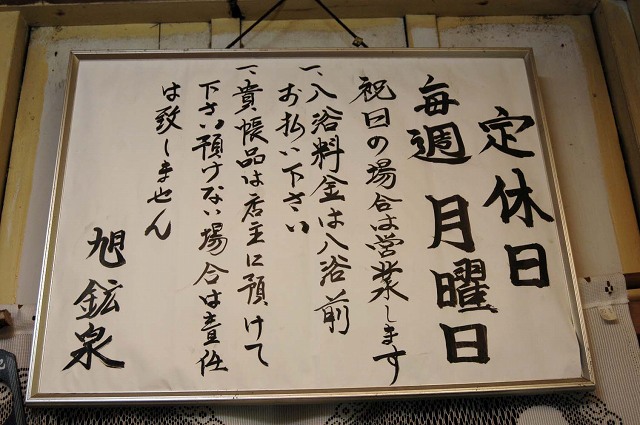 定休日
毎週月曜日
祝日の場合は営業します
一、入浴料金は入浴前
お払い下さい
一、貴帳品は店主に預けて
下さい預けない場合は責任
は致しません
旭鉱泉